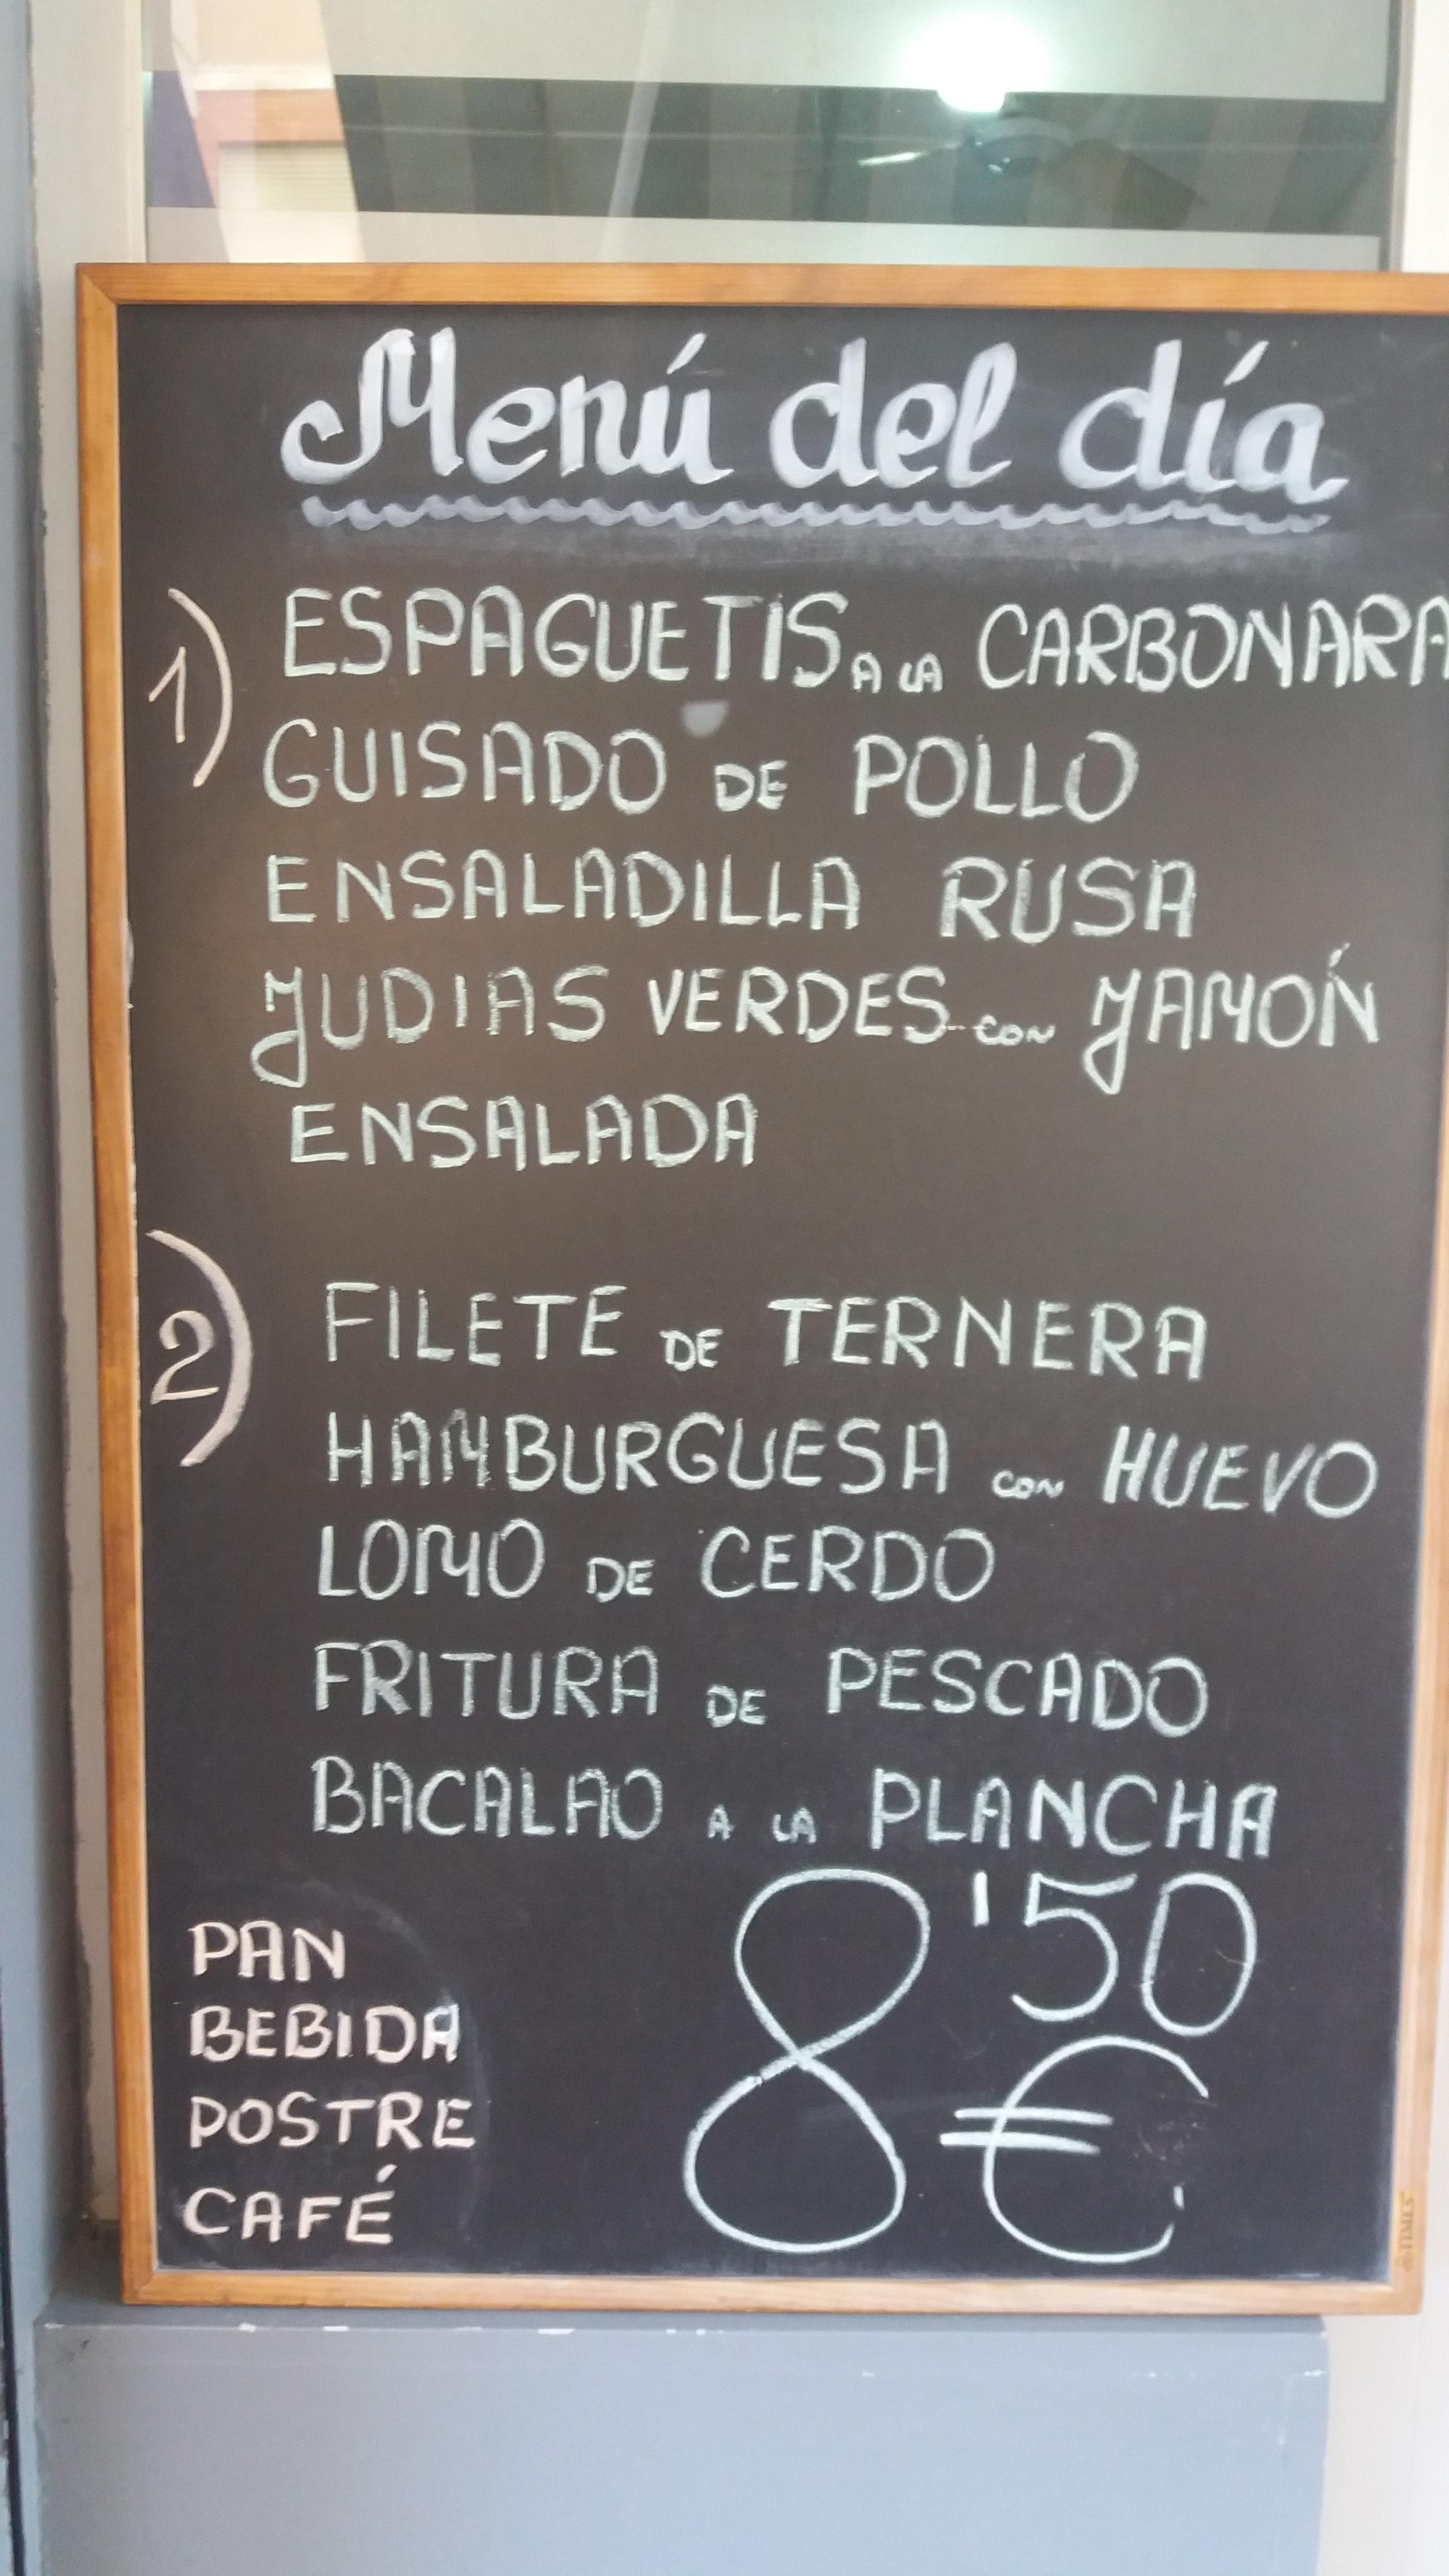 Menú del día
1) ESPAGUETIS A LA CARBONARA
GUISADO DE POLLO
ENSALADILLA RUSA
JUDIAS VERDES CON JAMÓN
ENSALADA
2) FILETE DE TERNERA
HAMBURGUESA CON HUEVO
LOMO DE CERDO
FRITURA DE PESCADO
BACALAO A LA PLANCHA
PAN
BEBIDA
POSTRE
CAFÉ
8'50
€